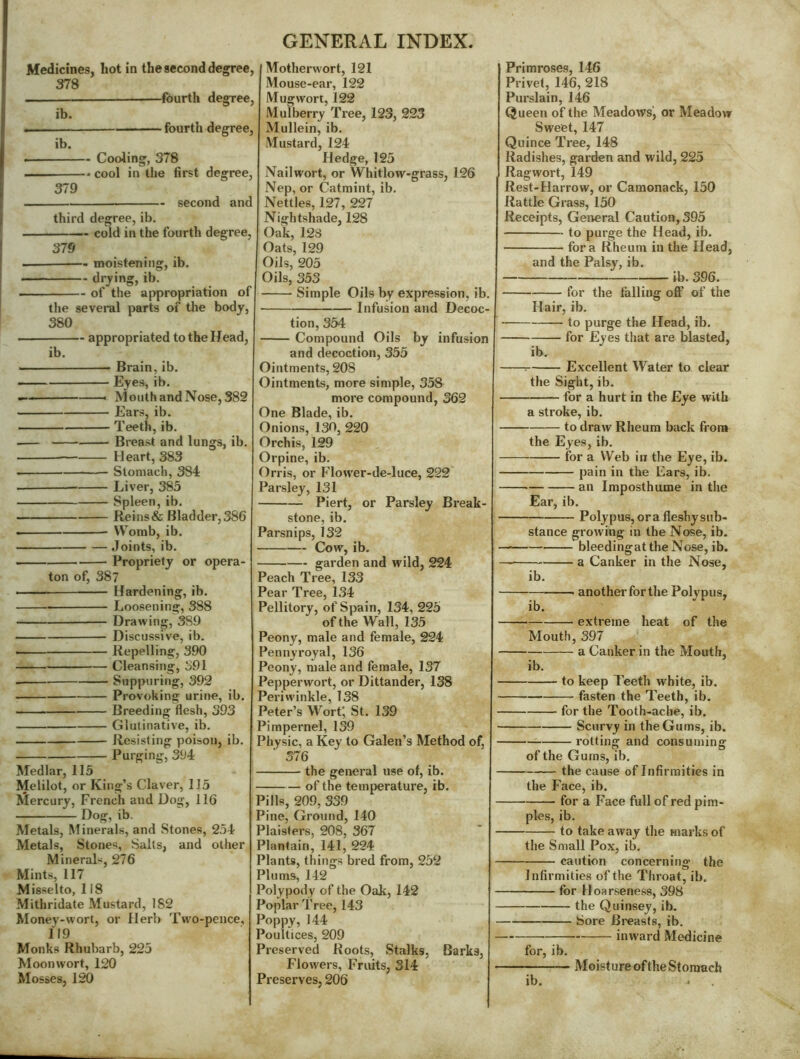 GENERAL INDEX.
Medicines, hot in the second degree,
378
——— fourth degree,
ib.
——— fourth degree,
ib.
——— Cooling, 378
——— cool in the first degree,
379
——— second and
third degree, ib.
——— cold in the fourth degree,
379
——— moistening, ib.
——— drying, ib.
——— of the appropriation of
the several parts of the body,
380
——— appropriated to the Head,
ib.
——— Brain, ib.
——— Eyes, ib.
——— Mouth and Nose, 382
——— Ears, ib.
——— Teeth, ib.
——— Breast and lungs, ib.
——— Heart, 383
——— Stomach, 384
——— Liver, 385
——— Spleen, ib.
——— Reins & Bladder, 386
——— Womb, ib.
——— Joints, ib.
——— Propriety or opera-
ton of, 387
——— Hardening, ib.
——— Loosening, 388
——— Drawing, 389
——— Discussive, ib.
——— Repelling, 390
——— Cleansing, 391
——— Suppuring, 392
——— Provoking urine, ib.
——— Breeding flesh, 393
——— Glutinative, ib.
——— Resisting poison, ib.
——— Purging, 394
Medlar, 115
Melilot, or King's Claver, 115
Mercury, French and Dog, 116
——— Dog, ib.
Metals, Minerals, and Stones, 254
Metals, Stones, Salts, and other
Minerals, 276
Mints, 117
Misselto, 118
Mithridate Mustard, 182
Money-wort, or Herb Two-pence,
119
Monks Rhubarb, 225
Moonwort, 120
Mosses, 120
Motherwort, 121
Mouse-ear, 122
Mugwort, 122
Mulberry Tree, 123, 223
Mullein, ib.
Mustard, 124
Hedge, 125
Nailwort, or Whitlow-grass, 126
Nep, or Catmint, ib.
Nettles, 127, 227
Nightshade, 128
Oak, 128
Oats, 129
Oils, 205
Oils, 353
——— Simple Oils by expression, ib.
——— Infusion and Decoc-
tion, 354
——— Compound Oils by infusion
and decoction, 355
Ointments, 208
Ointments, more simple, 358
more compound, 362
One Blade, ib.
Onions, 130, 220
Orchis, 129
Orpine, ib.
Orris, or Flower-de-luce, 222
Parsley, 131
——— Piert, or Parsley Break-
stone, ib.
Parsnips, 132
——— Cow, ib.
——— garden and wild, 224
Peach Tree, 133
Pear Tree, 134
Pellitory, of Spain, 134, 225
of the Wall, 135
Peony, male and female, 224
Pennyroyal, 136
Peony, male and female, 137
Pepperwort, or Dittander, 138
Periwinkle, 138
Peter's Wort, St. 139
Pimpernel, 139
Physic, a Key to Galen's Method of,
376
——— the general use of, ib.
——— of the temperature, ib.
Pills, 209, 339
Pine, Ground, 140
Plaisters, 208, 367
Plantain, 141, 224
Plants, things bred from, 252
Plums, 142
Polypody of the Oak, 142
Poplar Tree, 143
Poppy, 144
Poultices, 209
Preserved Roots, Stalks, Barks,
Flowers, Fruits, 314
Preserves, 206
Primroses, 146
Privet, 146, 218
Purslain, 146
Queen of the Meadows, or Meadow
Sweet, 147
Quince Tree, 148
Radishes, garden and wild, 225
Ragwort, 149
Rest-Harrow, or Camonack, 150
Rattle Grass, 150
Receipts, General Caution, 395
——— to purge the Head, ib.
——— for a Rheum in the Head,
and the Palsy, ib.
——— ib. 396.
——— for the falling off of the
Hair, ib.
——— to purge the Head, ib.
——— for Eyes that are blasted,
ib.
——— Excellent Water to clear
the Sight, ib.
——— for a hurt in the Eye with
a stroke, ib.
——— to draw Rheum back from
the Eyes, ib.
——— for a Web in the Eye, ib.
——— pain in the Ears, ib.
——— an Imposthume in the
Ear, ib.
——— Polypus, or a fleshy sub-
stance growing in the Nose, ib.
——— bleeding at the Nose, ib.
——— a Canker in the Nose,
ib.
——— another for the Polypus,
ib.
——— extreme heat of the
Mouth, 397
——— a Canker in the Mouth,
ib.
——— to keep Teeth white, ib.
——— fasten the Teeth, ib.
——— for the Tooth-ache, ib.
——— Scurvy in the Gums, ib.
——— rotting and consuming
of the Gums, ib.
——— the cause of Infirmities in
the Face, ib.
——— for a Face full of red pim-
ples, ib.
——— to take away the marks of
the Small Pox, ib.
——— caution concerning the
Infirmities of the Throat, ib.
——— for Hoarseness, 398
——— the Quinsey, ib.
——— Sore Breasts, ib.
——— inward Medicine
for, ib.
——— Moisture of the Stomach
ib.